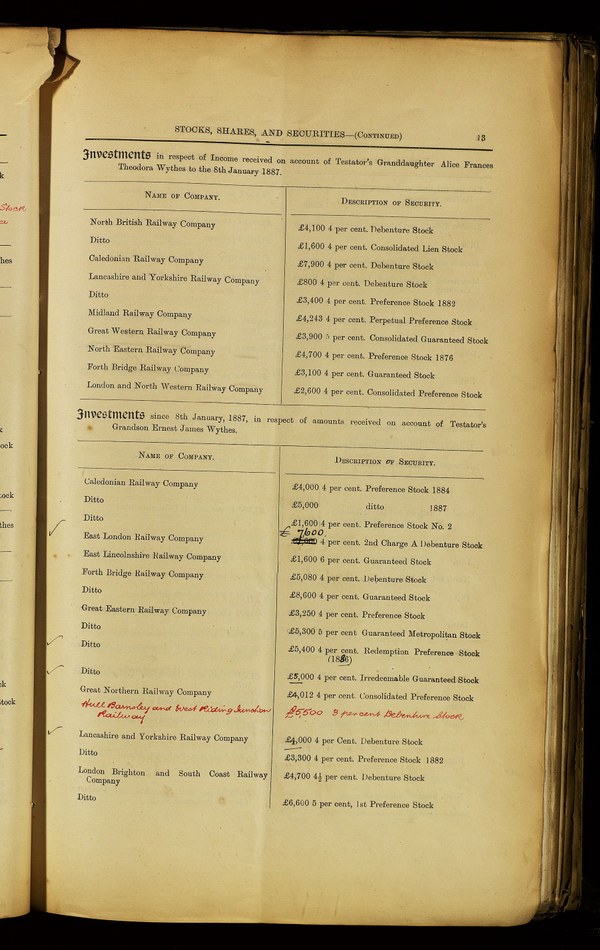 STOCKS, SHARES, AND SECURITIES—(CONTINUED) 13
Investments in respect of Income received on account of Testator's Granddaughter Alice Frances
Theodora Wythes to the 8th January 1887.
NAME OF COMPANY. DESCRIPTION OF SECURITY.
North British Railway Company £4,100 4 per cent. Debenture Stock
Ditto £1,600 4 per cent. Consolidated Lien Stock
Caledonian Railway Company £7,900 4 per cent. Debenture Stock
Lancashire and Yorkshire Railway Company £800 4 per cent. Debenture Stock
Ditto £3,400 4 per cent. Preference Stock 1882
Midland Railway Company £4,243 4 per cent. Perpetual Preference Stock
Great Western Railway Company £3,900 5 per cent. Consolidated Guaranteed Stock
North Eastern Railway Company £4,700 4 per cent. Preference Stock 1876
Forth Bridge Railway Company £3,100 4 per cent. Guaranteed Stock
London and North Western Railway Company £2,600 4 per cent. Consolidated Preference Stock
Investments since 8th January, 1887, in respect of amounts received on account of Testator's
Grandson Ernest James Wythes.
NAME OF COMPANY. DESCRIPTION OF SECURITY.
Caledonian Railway Company £4,000 4 per cent. Preference Stock 1884
Ditto £5,000 ditto 1887
Ditto £1,600 4 per cent. Preference Stock No. 2
£ 7600
East London Railway Company 4 per cent. 2nd Charge A Debenture Stock
East Lincolnshire Railway Company £1,600 6 per cent. Guaranteed Stock
Forth Bridge Railway Company £5,080 4 per cent. Debenture Stock
Ditto £8,600 4 per cent. Guaranteed Stock
Great Eastern Railway Company £3,250 4 per cent. Preference Stock
Ditto £5,300 5 per cent Guaranteed Metropolitan Stock
Ditto £5,400 4 per cent. Redemption Preference Stock
(1886)
Ditto £5,000 4 per cent. Irredeemable Guaranteed Stock
Great Northern Railway Company £4,012 4 per cent. Consolidated Preference Stock
Hull Barnsley and West Riding Junction £5,500 3 per cent Debenture Stock
Railway
Lancashire and Yorkshire Railway Company £4,000 4 per Cent. Debenture Stock
Ditto £3,300 4 per cent. Preference Stock 1882
London Brighton and South Coast Railway £4,700 4½ per cent. Debenture Stock
Company
Ditto £6,600 5 per cent, 1st Preference Stock